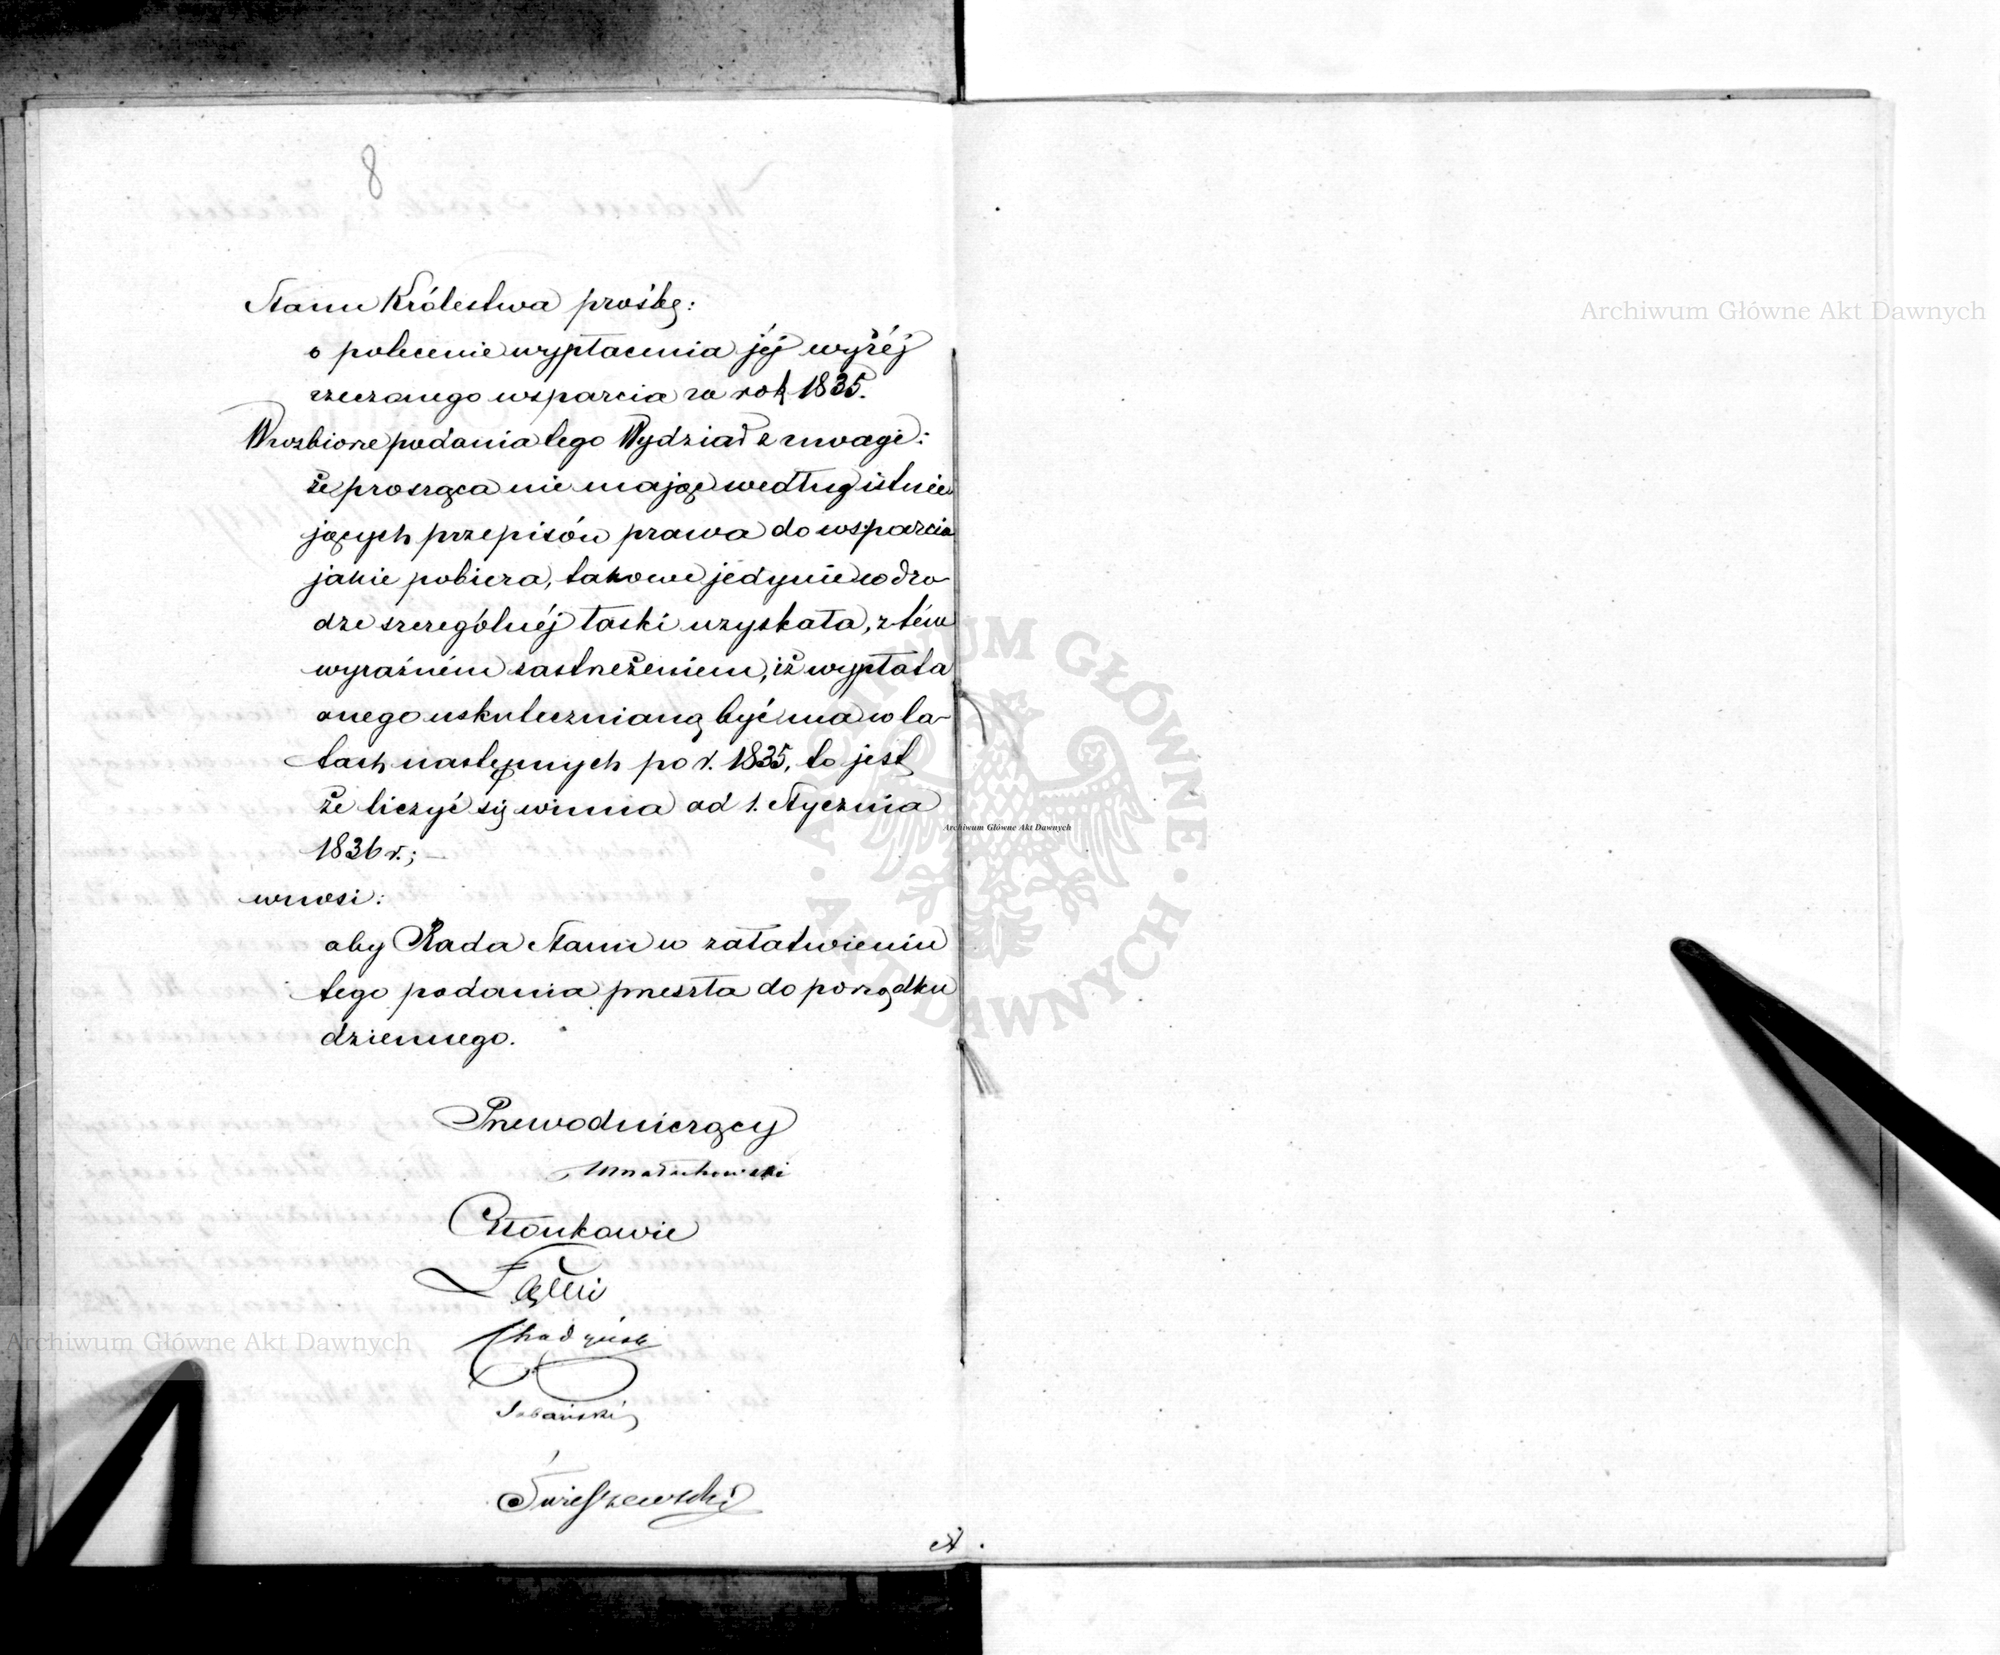 8
Stanu Królestwa prośbę:
o polecenie wypłacenia jéj wyżéj
rzeczonego wsparcia za rok 1835.
W rozbiorze podania tego Wydział z uwagi:
że prosząca nie mając według istnie
jących przepisów prawa do wsparcia
jakie pobiera, takowe jedynie w dro-
dze szczególnéj łaski uzyskała, z tém
wyraźném zastrzeżeniem, iż wypłata
onego uskutecznianą być ma w la-
tach następnych po r. 1835, to jest
że liczyć się winna od 1. Stycznia
1836 r.; —
wnosi:
aby Rada Stanu w załatwieniu
tego podania przeszła do porządku
dziennego.
Przewodniczący
Członkowie
Archiwum Główne Akt Dawnych
Archiwum Główne Akt Dawnych
Archiwum Główne Akt Dawnych
ARCHIWUM GŁÓWNE · AKT DAWNYCH ·